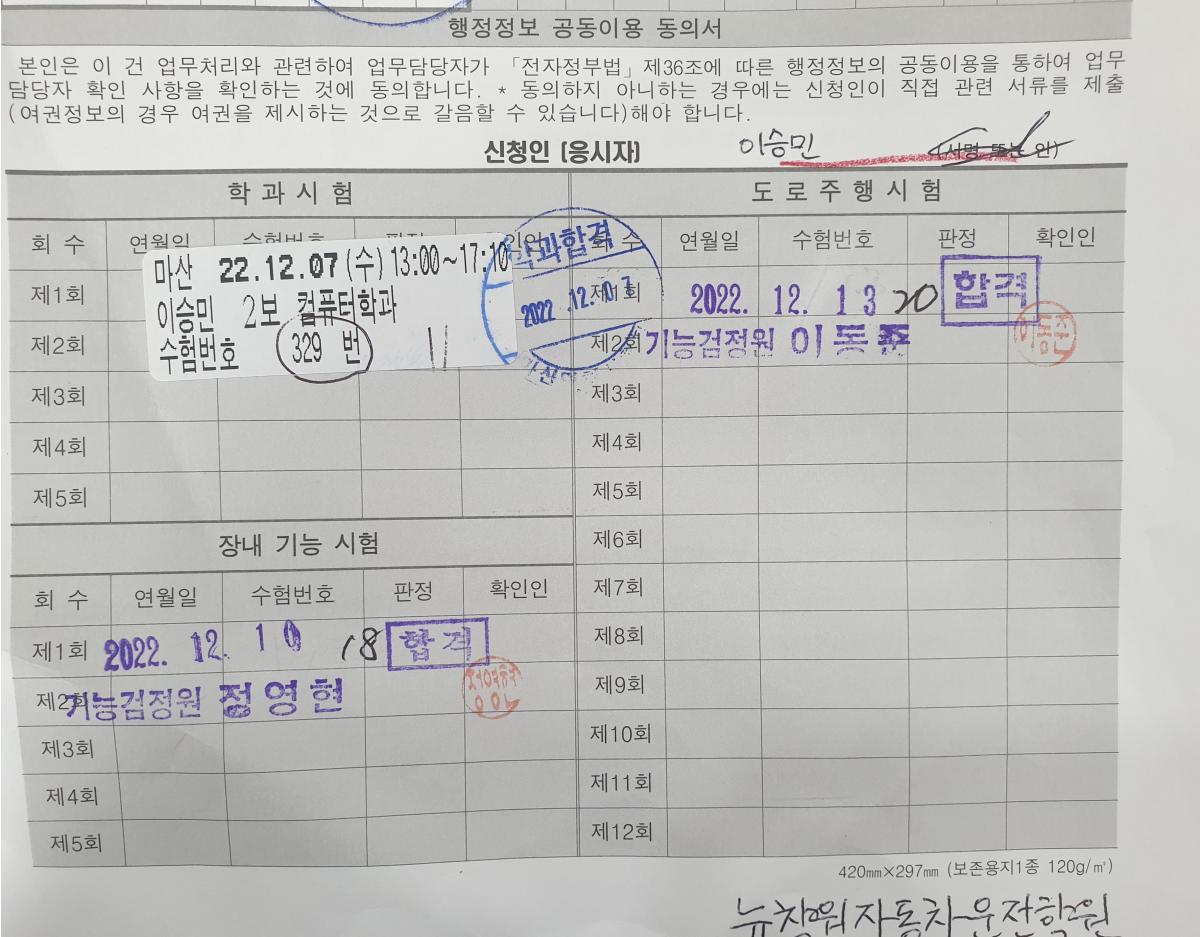 행정정보 공동이용 동의서
본인은 이 건 업무처리와 관련하여 업무담당자가 「전자정부법」 제36조에 따른 행정정보의 공동이용을 통하여 업무
담당자 확인 사항을 확인하는 것에 동의합니다. * 동의하지 아니하는 경우에는 신청인이 직접 관련 서류를 제출
(여권정보의 경우 여권을 제시하는 것으로 갈음할 수 있습니다)해야 합니다.
신청인 (응시자) 이승민 (서명 또는 인)
학 과 시 험
회 수 연월일 수험번호 판정
마산 22.12.07(수) 13:00~17:10
이승민 2보 컴퓨터학과
수험번호 329 번 11
학과합격
2022 .12. 0 7
제1회
제2회
제3회
제4회
제5회
도 로 주 행 시 험
회 수 연월일 수험번호 판정 확인인
제1회 2022. 12. 1 3 20 합격
제2회 기능검정원 이동준 이동준
제3회
제4회
제5회
제6회
제7회
제8회
제9회
제10회
제11회
제12회
장내 기능 시험
회 수 연월일 수험번호 판정 확인인
제1회 2022. 12. 1 0 18 합격
제2회 기능검정원 정영현
제3회
제4회
제5회
420㎜×297㎜ (보존용지1종 120g/㎡)
뉴창원자동차운전학원